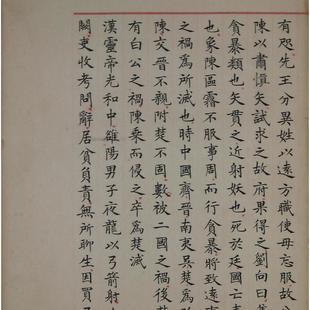 有咫先王分異姓以遠方職使毋忘服故分
陳以肅愼矢試求之故府果得之劉向曰
貪暴類也矢貫之近射妖也死於廷國亡表
也象陳眊霧不服事周而行貪暴將致遠夷
之禍爲所滅也時中國齊晉南夷吳楚爲
陳交晉不親附楚不固數被二國之禍後楚
有白公之禍陳乘而侵之卒爲楚滅
漢靈帝光和中雒陽男子夜龍以弓箭射
闕吏收考問辭居貧負責無所聊生因買